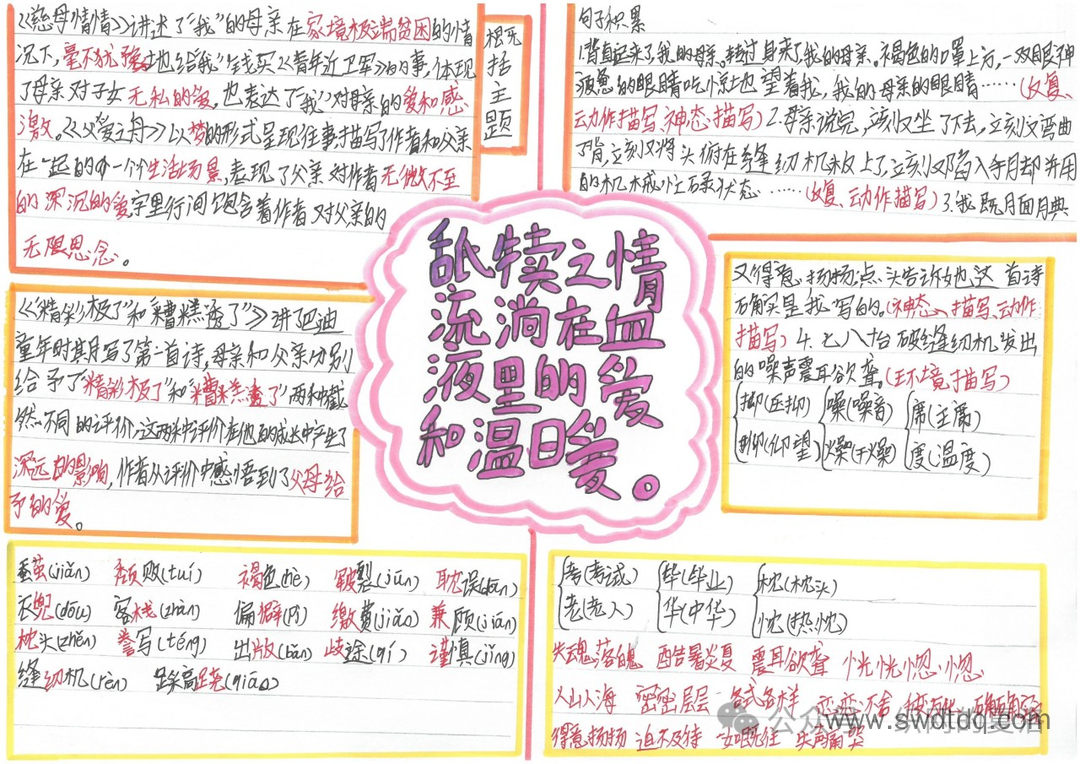 《慈母情情》讲述了“我”的母亲在家境极端贫困的情
况下,毫不犹豫地给我”钱买《青年近卫军》的事,体现
了母亲对子女无私的爱,也表达了“我”对母亲的爱和感
激。《父爱之舟》以梦的形式呈现往事,描写了作者和父亲
在一起的一个个生活场景,表现了父亲对作者无微不至
的深沉的爱,字里行间饱含着作者对父亲的
无限思念。
概括主题
句子积累
1.背直起来了,我的母亲。转过身来了,我的母亲。褐色的口罩上方,一双眼神
疲惫的眼睛吃惊地望着我,我的母亲的眼睛……(反复、
动作描写、神态描写)2.母亲说完,立刻又坐了下去,立刻又弯曲
了背,立刻又将头俯在缝纫机板上了,立刻又陷入手脚并用
的机械忙碌状态……(反复、动作描写)3.我既腼腆
又得意扬扬,点头告诉她这首诗
确实是我写的。(神态、描写、动作
描写)4.七八台破缝纫机发出
的噪声震耳欲聋。(环境描写)
抑(压抑) 噪(噪音) 席(主席)
仰(仰望) 燥(干燥) 度(温度)
舐犊之情
流淌在血
液里的爱
和温暖。
《“精彩极了”和“糟糕透了”》讲了巴迪
童年时期写了第一首诗,母亲和父亲分别
给予了“精彩极了”和“糟糕透了”两种截
然不同的评价,这两种评价在他的成长中产生了
深远的影响,作者从评价中感悟到了父母给
予的爱。
蚕茧(jiǎn) 颓败(tuí) 褐色(hè) 皲裂(jūn) 耽误(dān)
衣兜(dōu) 客栈(zhàn) 偏僻(pì) 缴费(jiǎo) 兼顾(jiān)
枕头(zhěn) 誊写(téng) 出版(bǎn) 歧途(qí) 谨慎(jǐng)
缝纫机(rèn) 踩高跷(qiāo)
考(考试) 毕(毕业) 枕(枕头)
老(老人) 华(中华) 忱(热忱)
失魂落魄 酷暑炎夏 震耳欲聋 恍恍惚惚
人山人海 密密层层 各式各样 恋恋不舍
得意扬扬 迫不及待
公众
www.swdtdq.com